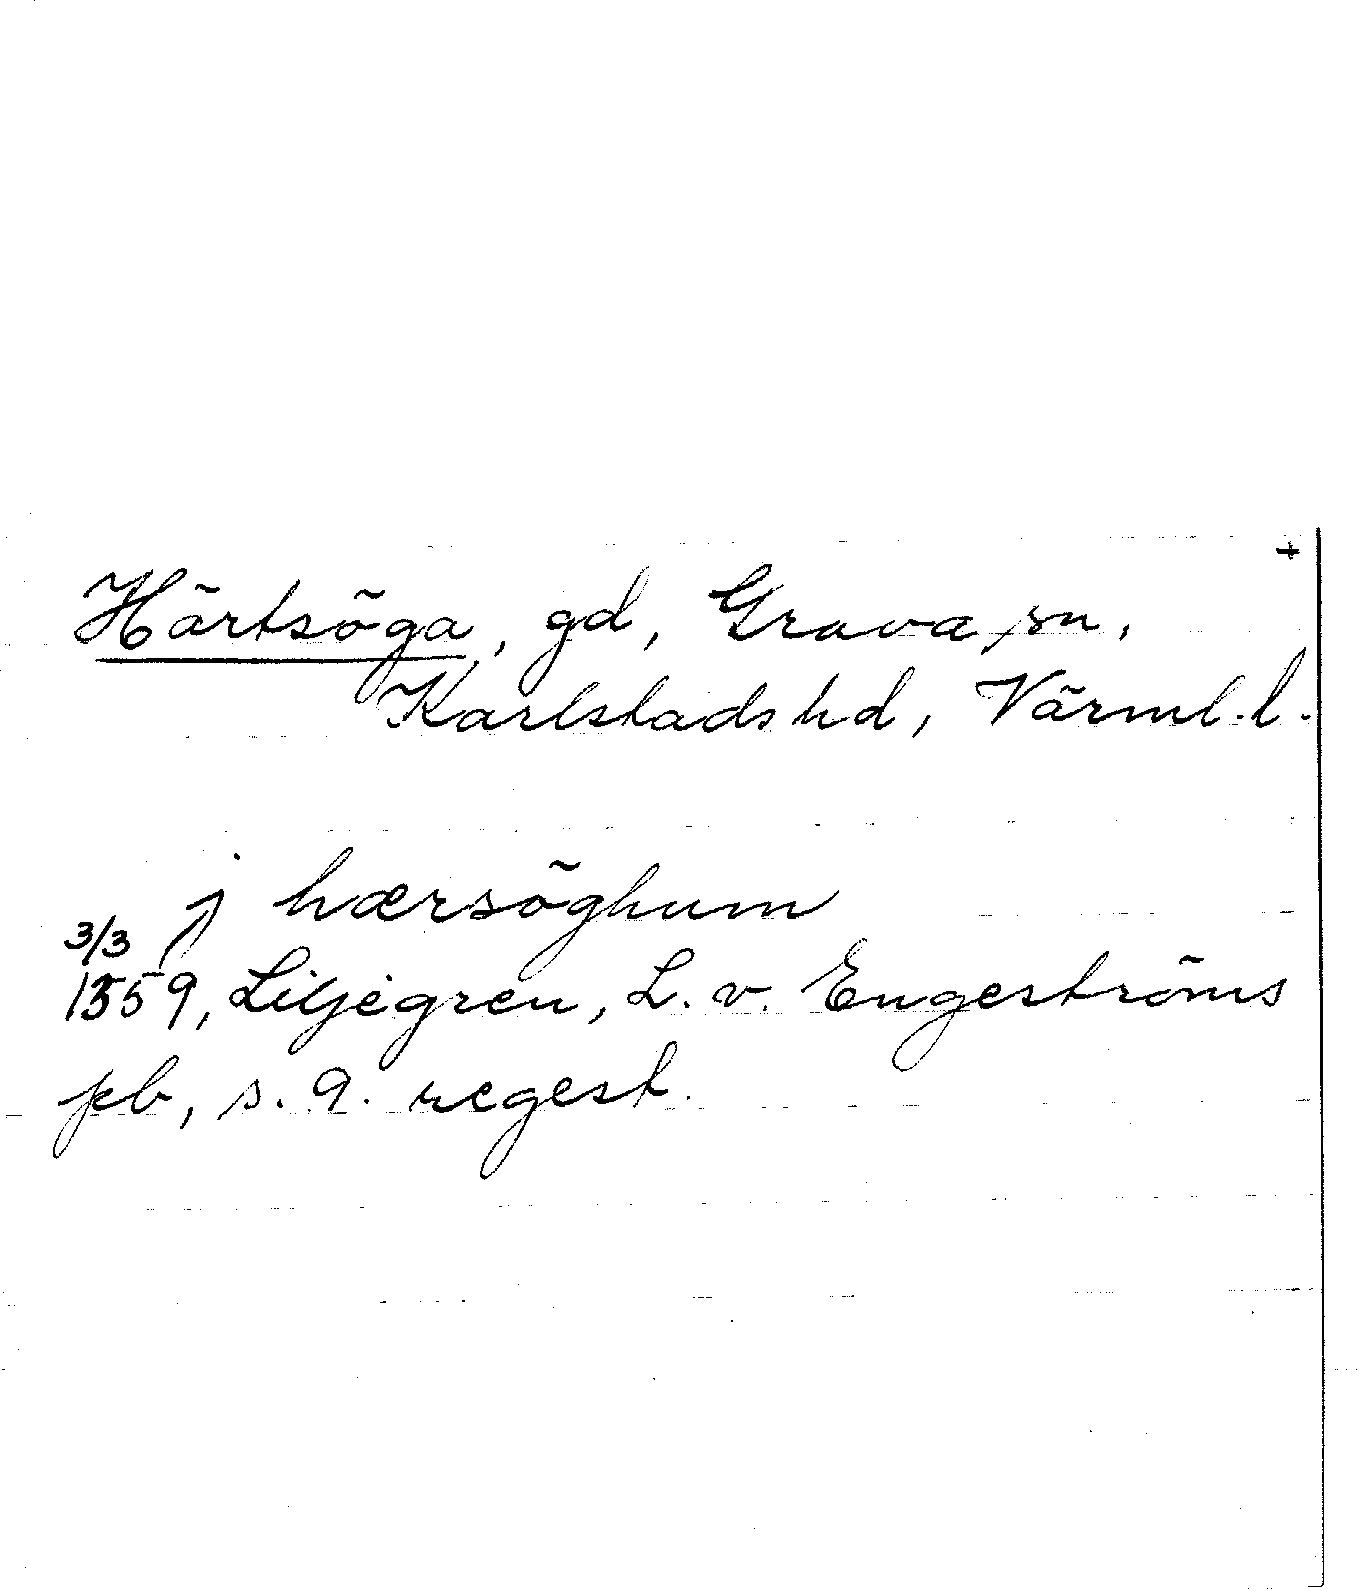 +
Härtsöga, gd, Grava sn,
Karlstads hd, Värml. l.
j hærsöghum
3/3
1359, Liljegren, L. v. Engeströms
pb, s. 9. regest.